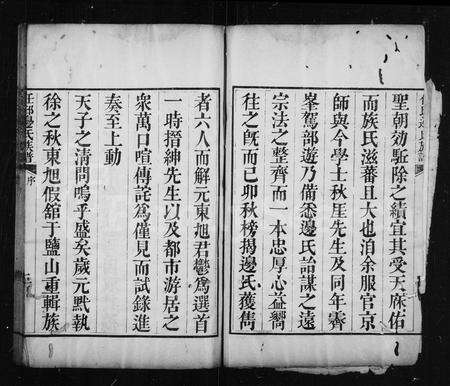 聖朝効驅除之績宜其受天庥佑
而族氏滋蕃且大也洎余服官京
師與今學士秋厓先生及同年霽
峯駕部遊乃備悉邊氏詒謀之遠
宗法之整齊而一本忠厚心益嚮
往之旣而己卯秋榜揭邊氏獲雋
者六人而解元東旭君鬱爲選首
一時搢紳先生以及都市游居之
衆萬口喧傳詫爲僅見而試録進
奏至上動
天子之清問嗚乎盛矣歲元默執
徐之秋東旭假舘于鹽山重輯族
任邱邊氏族譜
序